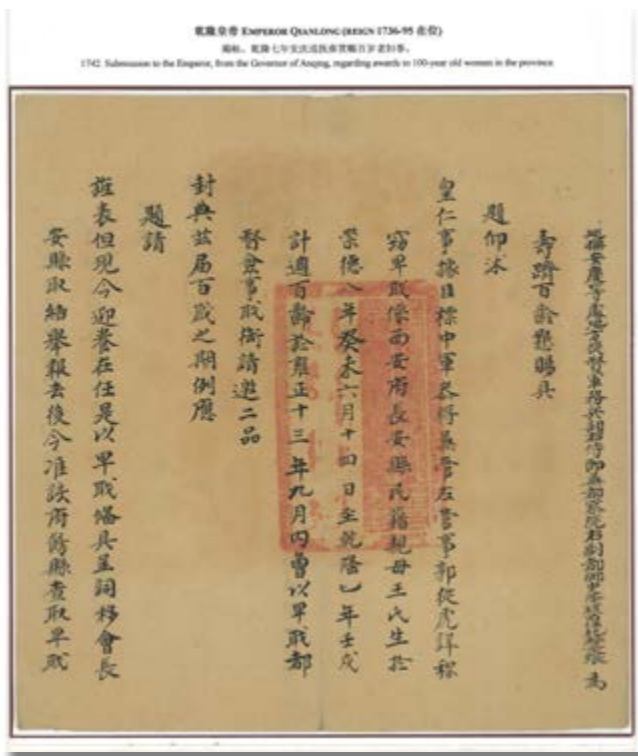 乾隆皇帝 EMPEROR QIANLONG (REIGN 1736-95 在位)
揭帖。乾隆七年安庆巡抚奏赏赐百岁老妇事。
1742 Submission to the Emperor, from the Governor of Anqing, regarding awards to 100-year old women in the province
巡撫安慶等處地方提督軍務兵部右侍郎兼都察院右副都御史張 為
壽躋百齡懇賜具
題仰沐
皇仁事據 標中軍參將兼管左營事郭從虎詳稱
竊卑職係西安府長安縣民籍親母王氏生於
崇德八年癸未六月十四日至乾隆七年壬戌
計適百齡於雍正十三年九月內曾以卑職都
督僉事職銜請邀二品
封典茲屆百歲之期例應
題請
旌表但現今迎養在任是以卑職備具呈詞移會長
安縣取結舉報去後今准該府飭縣查取卑職